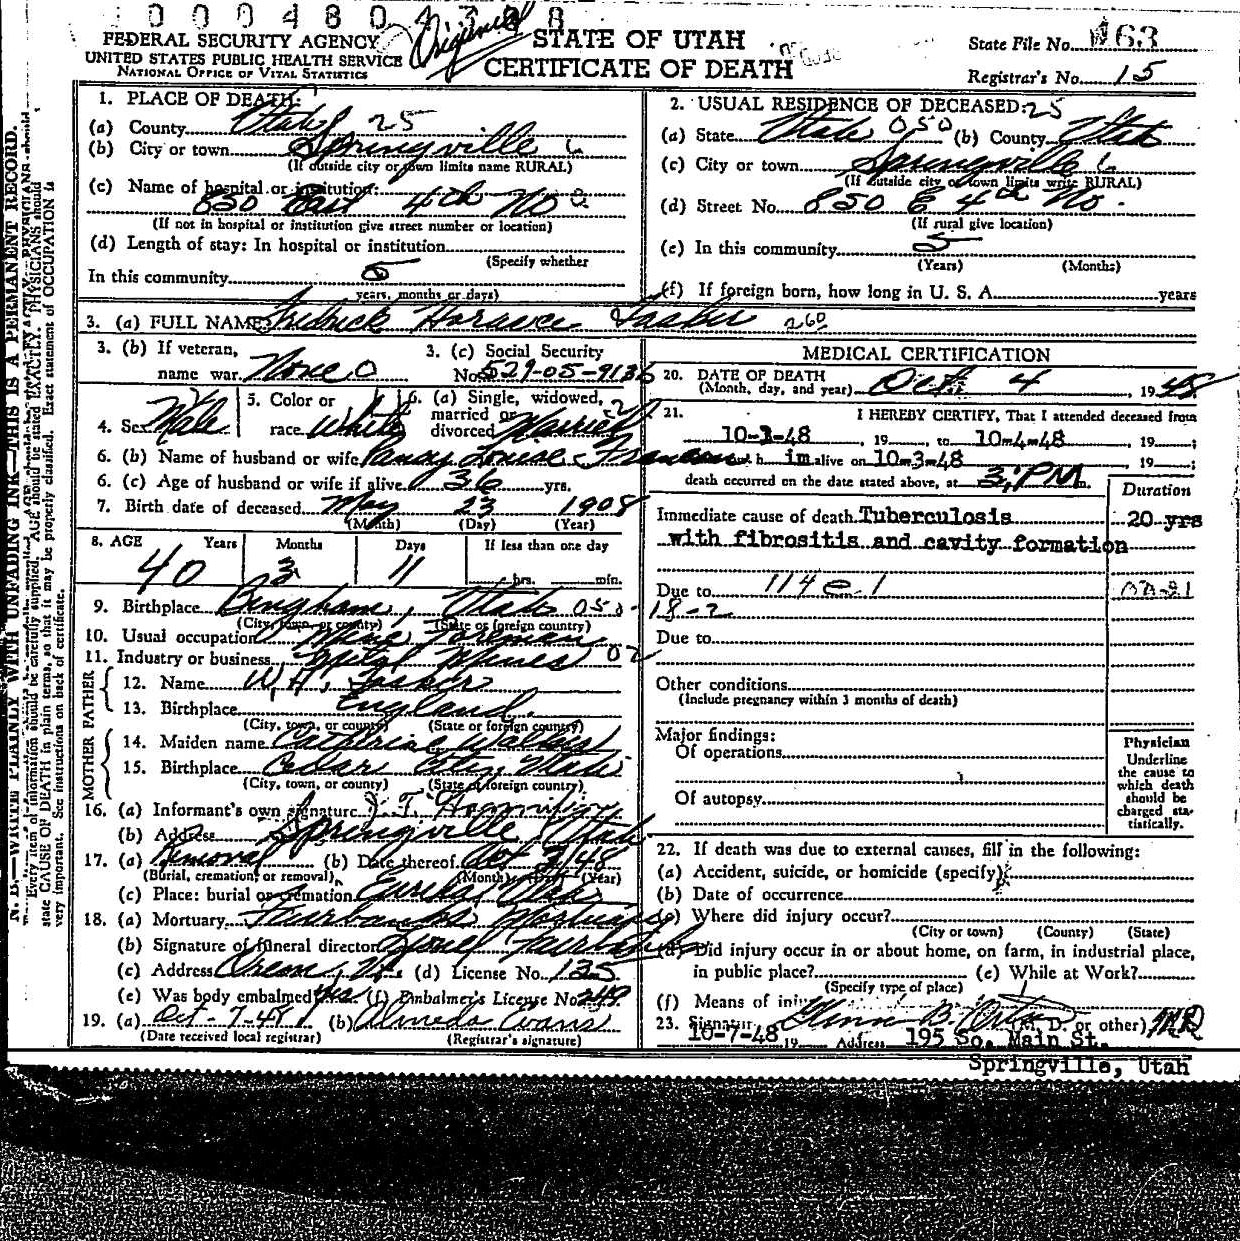 0 0 0 4 8 0 4 3 0 8
FEDERAL SECURITY AGENCY
UNITED STATES PUBLIC HEALTH SERVICE
NATIONAL OFFICE OF VITAL STATISTICS
Original
STATE OF UTAH
CERTIFICATE OF DEATH
State File No. 163
Registrar's No. 15
N. B.—WRITE PLAINLY, WITH UNFADING INK—THIS IS A PERMANENT RECORD.
Every item of information should be carefully supplied. AGE should be stated EXACTLY. PHYSICIANS should
state CAUSE OF DEATH in plain terms, so that it may be properly classified. Exact statement of OCCUPATION is
very important. See instructions on back of certificate.
1. PLACE OF DEATH:
(a) County Utah 25
(b) City or town Springville
(If outside city or town limits name RURAL)
(c) Name of hospital or institution:
850 East 4th No
(If not in hospital or institution give street number or location)
(d) Length of stay: In hospital or institution
(Specify whether
In this community 5
years, months or days)
2. USUAL RESIDENCE OF DECEASED: 25
(a) State Utah 050 (b) County Utah
(c) City or town Springville
(If outside city or town limits write RURAL)
(d) Street No. 850 E 4th No.
(If rural give location)
(e) In this community 5
(Years) (Months)
(f) If foreign born, how long in U. S. A. years
3. (a) FULL NAME: Fredrick Horace Tasker 260
3. (b) If veteran,
name war None 0
3. (c) Social Security
No. 529-05-9136
4. Sex Male
5. Color or
race White
6. (a) Single, widowed,
married or
divorced Married
6. (b) Name of husband or wife Louise
6. (c) Age of husband or wife if alive 36 yrs.
7. Birth date of deceased May 23 1908
(Month) (Day) (Year)
8. AGE Years Months Days If less than one day
40 3 11 hrs. min.
9. Birthplace Bingham, Utah 050
(City, town, or county) (State or foreign country)
10. Usual occupation Mine Foreman
11. Industry or business Metal Mines 02
FATHER
12. Name W. H. Tasker
13. Birthplace England
(City, town, or county) (State or foreign country)
MOTHER
14. Maiden name Catherine Walker
15. Birthplace Cedar City, Utah
(City, town, or county) (State of foreign country)
16. (a) Informant's own signature
(b) Address Springville Utah
17. (a) Removal (b) Date thereof Oct 7/48
(Burial, cremation, or removal) (Month) (Day) (Year)
(c) Place: burial or cremation Eureka Utah
18. (a) Mortuary Fairbanks Mortuary
(b) Signature of funeral director Lionel Fairbanks
(c) Address Orem, Ut. (d) License No. 135
(e) Was body embalmed Yes (f) Embalmer's License No. 249
19. (a) Oct-7-48 (b) Almeda Evans
(Date received local registrar) (Registrar's signature)
MEDICAL CERTIFICATION
20. DATE OF DEATH
(Month, day, and year) Oct 4, 1948
21. I HEREBY CERTIFY, That I attended deceased from
10-1-48, 19, to 10-4-48, 19;
h im alive on 10-3-48, 19;
death occurred on the date stated above, at 3:PM m.
Duration
Immediate cause of death Tuberculosis 20 yrs
with fibrositis and cavity formation
Due to 114e.1
18-2
Due to
Other conditions
(Include pregnancy within 3 months of death)
Major findings:
Of operations
Of autopsy
Physician
Underline
the cause to
which death
should be
charged sta-
tistically.
22. If death was due to external causes, fill in the following:
(a) Accident, suicide, or homicide (specify)
(b) Date of occurrence
(c) Where did injury occur?
(City or town) (County) (State)
(d) Did injury occur in or about home, on farm, in industrial place,
in public place? (e) While at Work?
(Specify type of place)
(f) Means of injury
23. Signature Glenn B. Orton (M. D. or other) MD
10-7-48 19 Address 195 So. Main St.
Springville, Utah